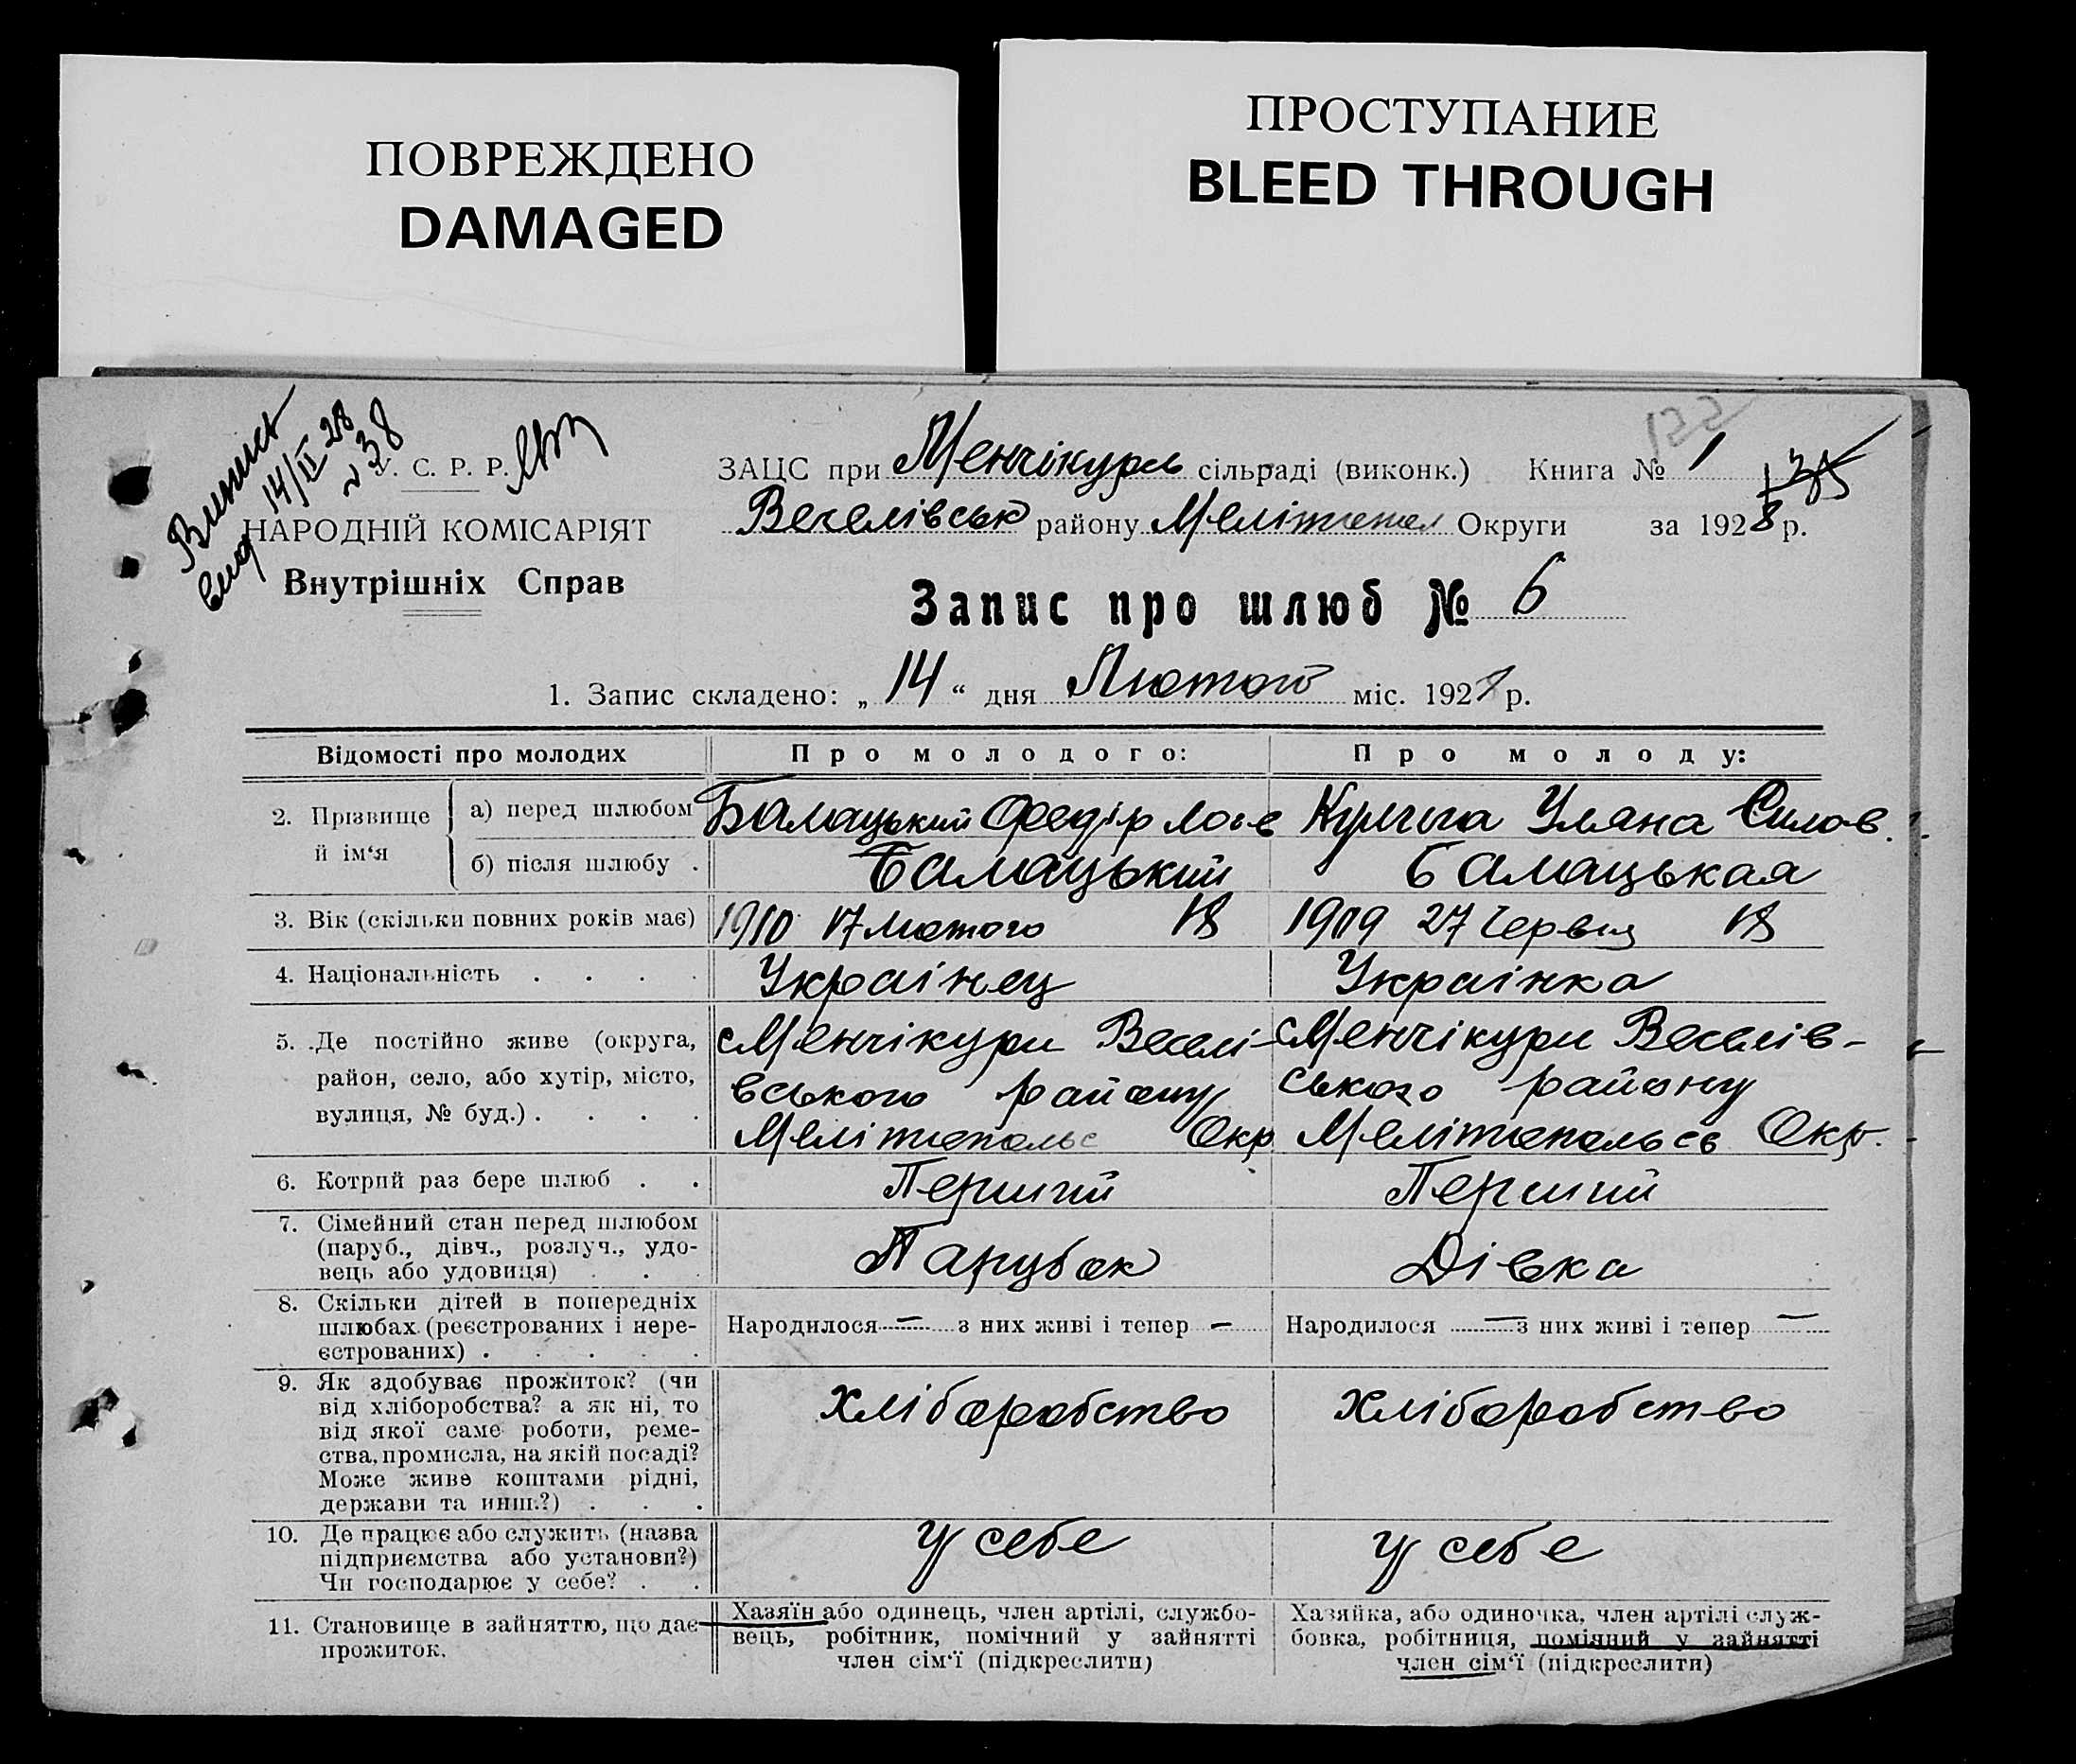 ПОВРЕЖДЕНО
DAMAGED
ПРОСТУПАНИЕ
BLEED THROUGH
122
14/II 28
№ 38
У. С. Р. Р.
НАРОДНІЙ КОМІСАРІЯТ
Внутрішніх Справ
ЗАЦС при Менчікури сільраді (виконк.) Книга № 1
Веселівськ району Меліто Округи за 1928 р.
Запис про шлюб № 6
1. Запис складено: „14“ дня Лютого міс. 1928 р.
Відомості про молодих
Про молодого:
Про молоду:
2. Прізвище й ім‘я
а) перед шлюбом
Бамацький Федір
Уляна Силов.
б) після шлюбу .
Бамацький
Бамацькая
3. Вік (скільки повних років має)
1910 17 Лютого 18
1909 27 Червця 18
4. Національність . . . .
Українец
Українка
5. Де постійно живе (округа,
район, село, або хутір, місто,
вулиця, № буд.) . . . .
с Менчікури Веселі-
вського району
Мелітопольс Окр
с Менчікури Веселів-
ського району
Мелітопольсь Окр.
6. Котрий раз бере шлюб . .
Перший
Перший
7. Сімейний стан перед шлюбом
(паруб., дівч., розлуч., удо-
вець або удовиця) . .
Парубок
Дівка
8. Скільки дітей в попередніх
шлюбах (реєстрованих і нере-
єстрованих) . . . . .
Народилося — з них живі і тепер —
Народилося — з них живі і тепер —
9. Як здобуває прожиток? (чи
від хліборобства? а як ні, то
від якої саме роботи, реме-
ства, промисла, на якій посаді?
Може живе коштами рідні,
держави та инш.?) . . .
Хліборобство
Хліборобство
10. Де працює або служить (назва
підприємства або установи?)
Чи господарює у себе? . .
У себе
У себе
11. Становище в зайняттю, що дає
прожиток.
Хазяїн або одинець, член артілі, службо-
вець, робітник, помічний у зайнятті
член сім‘ї (підкреслити)
Хазяйка, або одиночка, член артілі служ-
бовка, робітниця, помічний у зайнятті
член сім‘ї (підкреслити)